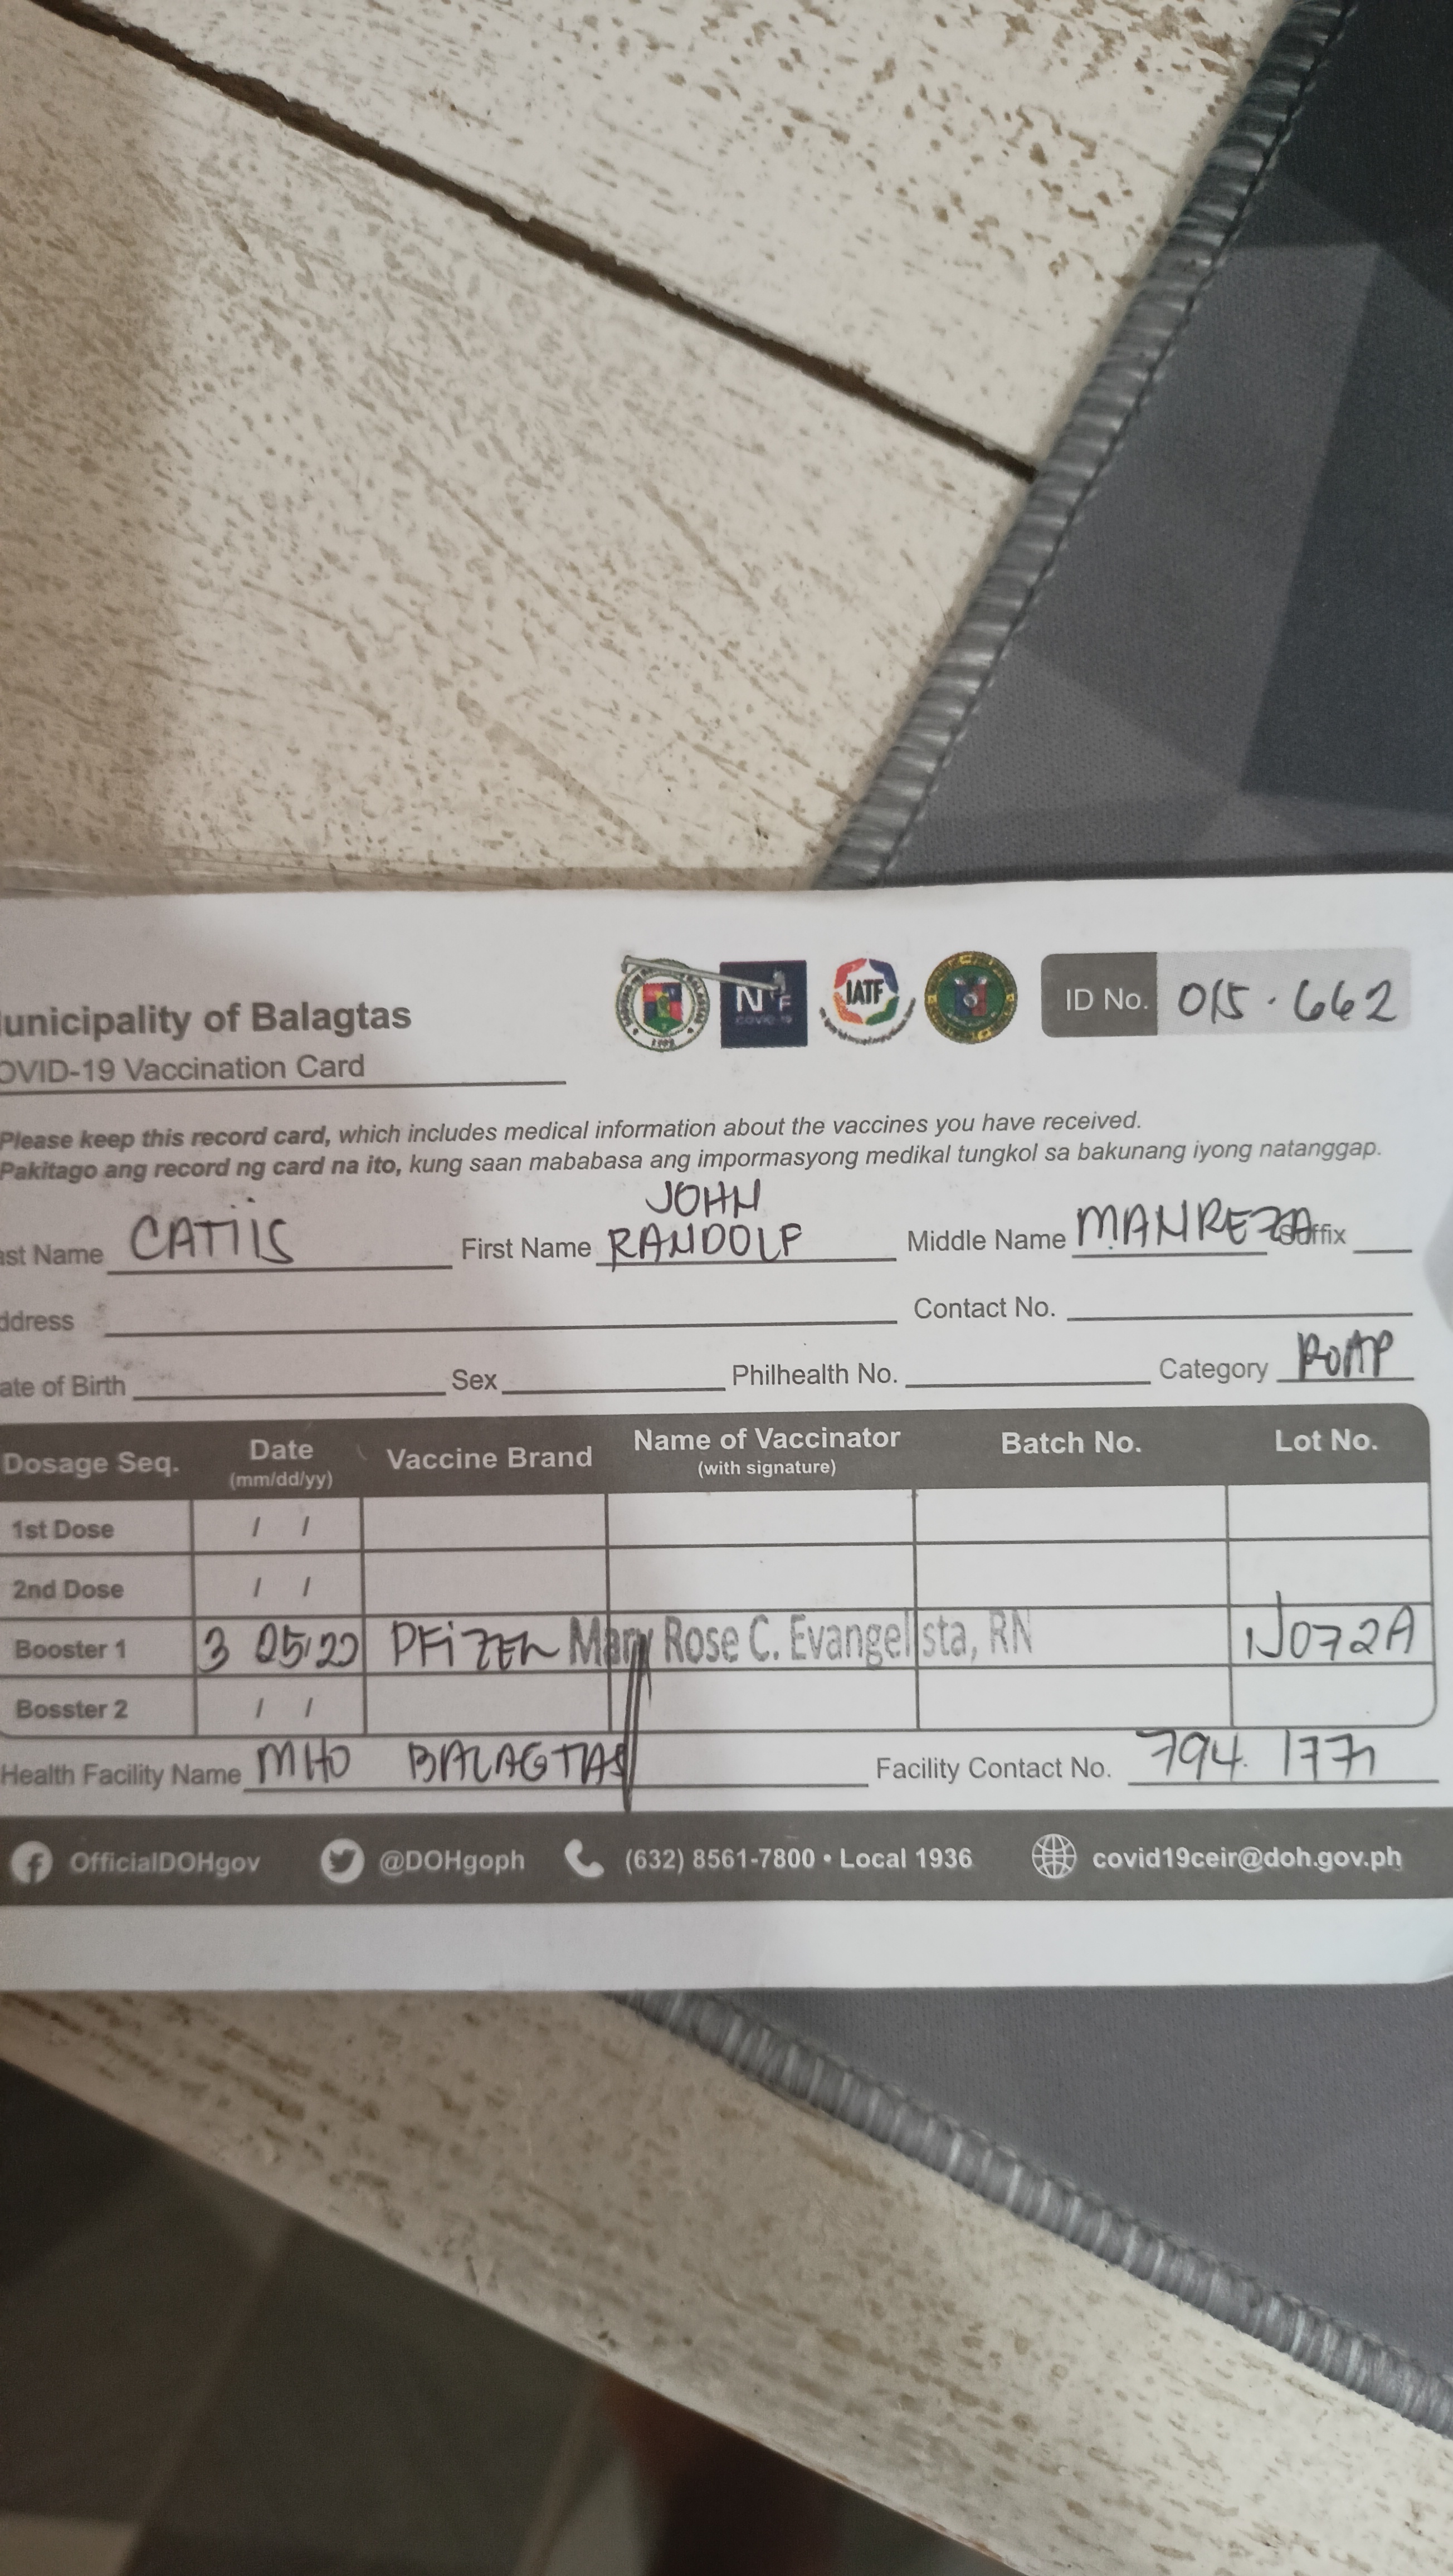 unicipality of Balagtas
OVID-19 Vaccination Card
N F
COVID-19
IATF
1799
ID No. 015.662
Please keep this record card, which includes medical information about the vaccines you have received.
Pakitago ang record ng card na ito, kung saan mababasa ang impormasyong medikal tungkol sa bakunang iyong natanggap.
ast Name CATIIS First Name JOHN RANDOLF Middle Name MANREZA Suffix
ddress Contact No.
ate of Birth Sex Philhealth No. Category ROAP
Dosage Seq. Date (mm/dd/yy) Vaccine Brand Name of Vaccinator (with signature) Batch No. Lot No.
1st Dose / /
2nd Dose / /
Booster 1 3 05 22 PFiZER Mary Rose C. Evangelista, RN
Bosster 2 / /
Health Facility Name MHO BALAGTAS Facility Contact No. 794.
OfficialDOHgov @DOHgoph (632) 8561-7800 • Local 1936 covid19ceir@doh.gov.ph